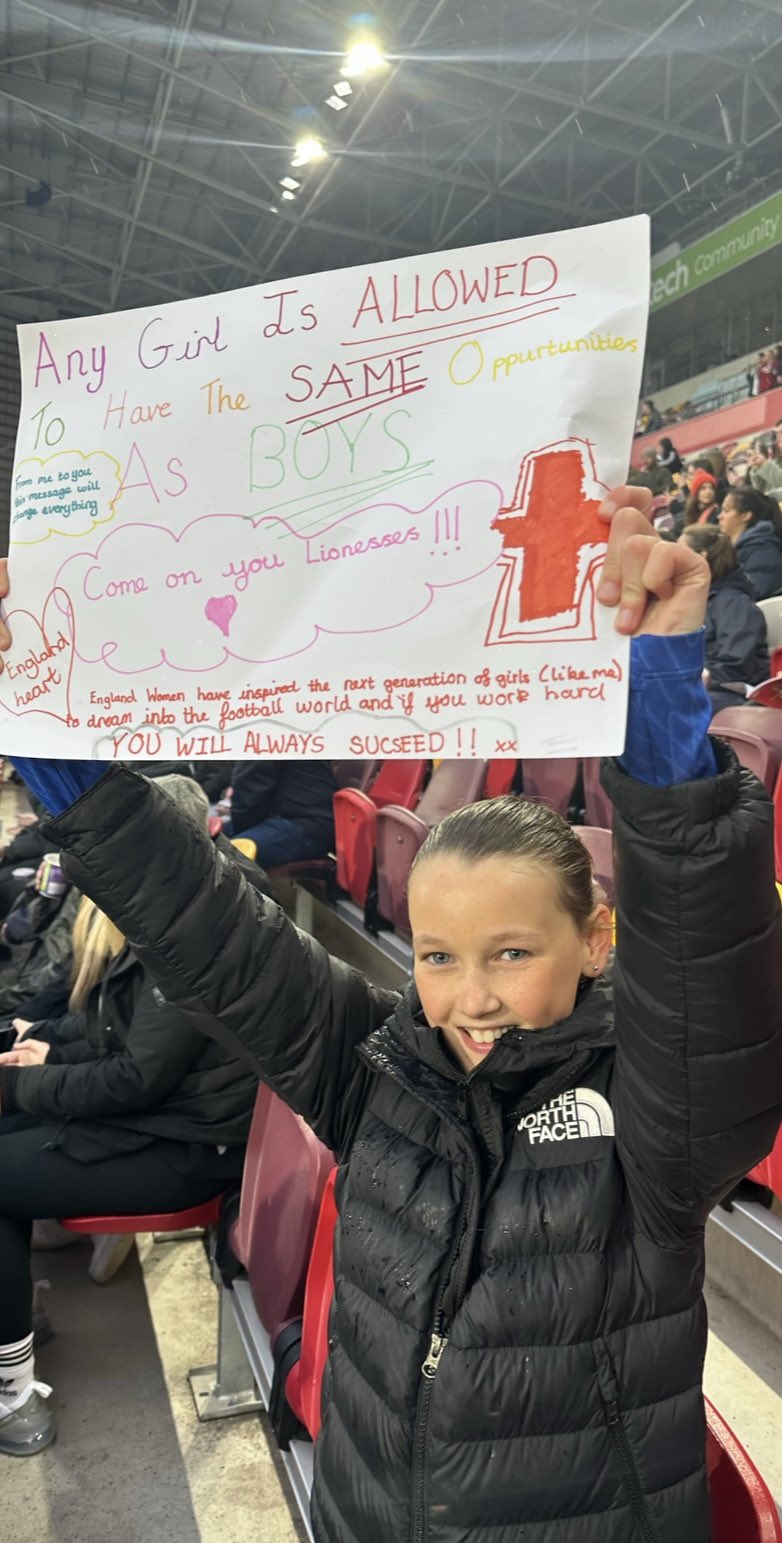 Any Girl Is ALLOWED
To Have The SAME Oppurtunities
As BOYS
From me to you
this message will
change everything
Come on you Lionesses !!!
England
heart
England Women have inspired the next generation of girls (like me)
to dream into the football world and if you work hard
YOU WILL ALWAYS SUCSEED !! xx
tech Community
THE
NORTH
FACE